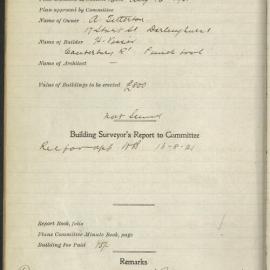 Plan approved by Committee
Name of Owner A. Titterton
17 Stuart St Darlinghurst
Name of Builder H.
Canterbury Rd Punchbowl
Name of Architect -
Value of Buildings to be erected £800
not Sewered
Building Surveyor's Report to Committee
Rec for app 16-8-21
Report Book, folio
Plans Committee Minute Book, page
Building Fee Paid
Remarks